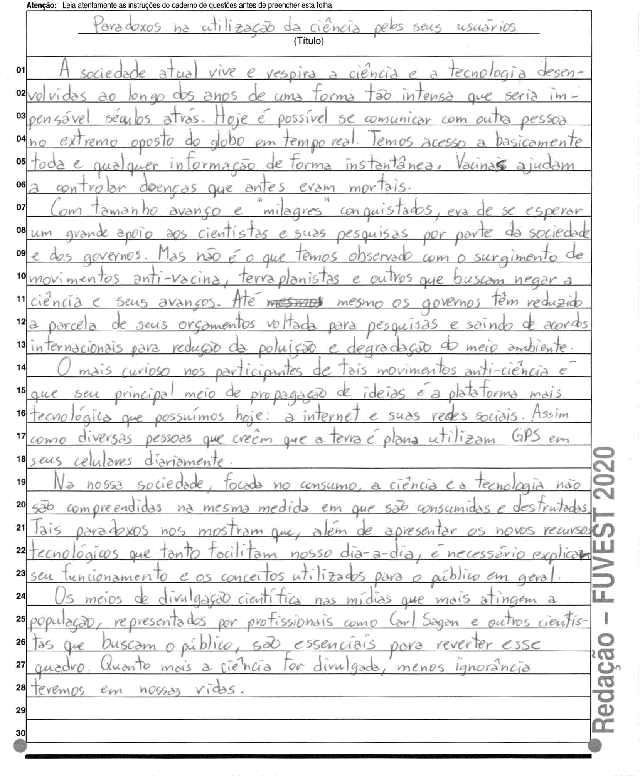 Atenção: Leia atentamente as instruções do caderno de questões antes de preencher esta folha.
Paradoxos na utilização da ciência pelos seus usuários
(Título)
01 A sociedade atual vive e respira a ciência e a tecnologia desen-
02 volvidas ao longo dos anos de uma forma tão intensa que seria im-
03 pensável séculos atrás. Hoje é possível se comunicar com outra pessoa
04 no extremo oposto do globo em tempo real. Temos acesso a basicamente
05 toda e qualquer informação de forma instantânea. Vacinas ajudam
06 a controlar doenças que antes eram mortais.
07 Com tamanho avanço e "milagres" conquistados, era de se esperar
08 um grande apoio aos cientistas e suas pesquisas por parte da sociedade
09 e dos governos. Mas não é o que temos observado com o surgimento de
10 movimentos anti-vacina, terraplanistas e outros que buscam negar a
11 ciência e seus avanços. Até mesmo os governos têm reduzido
12 a parcela de seus orçamentos voltada para pesquisas e saindo de acordos
13 internacionais para redução da poluição e degradação do meio ambiente.
14 O mais curioso nos participantes de tais movimentos anti-ciência é
15 que seu principal meio de propagação de ideias é a plataforma mais
16 tecnológica que possuímos hoje: a internet e suas redes sociais. Assim
17 como diversas pessoas que creêm que a terra é plana utilizam GPS em
18 seus celulares diariamente.
19 Na nossa sociedade, focada no consumo, a ciência e a tecnologia não
20 são compreendidas na mesma medida em que são consumidas e desfrutadas.
21 Tais paradoxos nos mostram que, além de apresentar os novos recursos
22 tecnológicos que tanto facilitam nosso dia-a-dia, é necessário explicar
23 seu funcionamento e os conceitos utilizados para o público em geral.
24 Os meios de divulgação científica nas mídias que mais atingem a
25 população, representados por profissionais como Carl Sagan e outros cientis-
26 tas que buscam o público, são essenciais para reverter esse
27 quadro. Quanto mais a ciência for divulgada, menos ignorância
28 teremos em nossas vidas.
29
30
Redação – FUVEST 2020